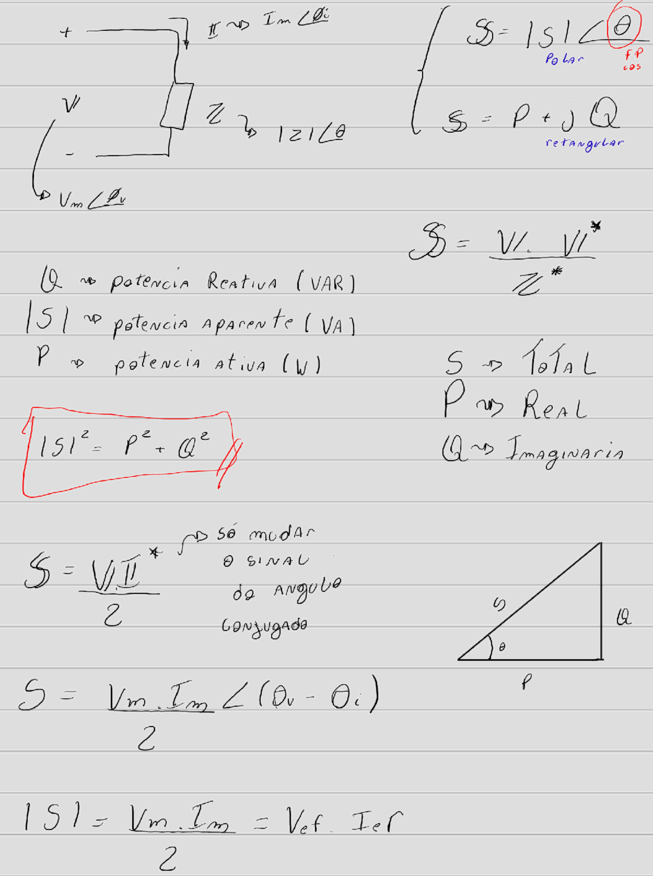 +
𝕀 → Im∠Øi
𝕊 = |S|∠θ
Polar
FP
cos
𝕍
ℤ
|Z|∠θ
𝕊 = P + jQ
retangular
-
Vm∠Øv
𝕊 = 𝕍. 𝕍* / ℤ*
Q → potencia Reativa (VAR)
|S| → potencia Aparente (VA)
P → potencia ativa (W)
S → ToTAL
P → Real
Q → Imaginaria
|S|² = P² + Q²
𝕊 = 𝕍.𝕀* / 2
→ só mudar
o sinal
do angulo
conjugado
S
Q
θ
P
S = Vm.Im / 2 ∠(θv - θi)
|S| = Vm.Im / 2 = Vef. Ief